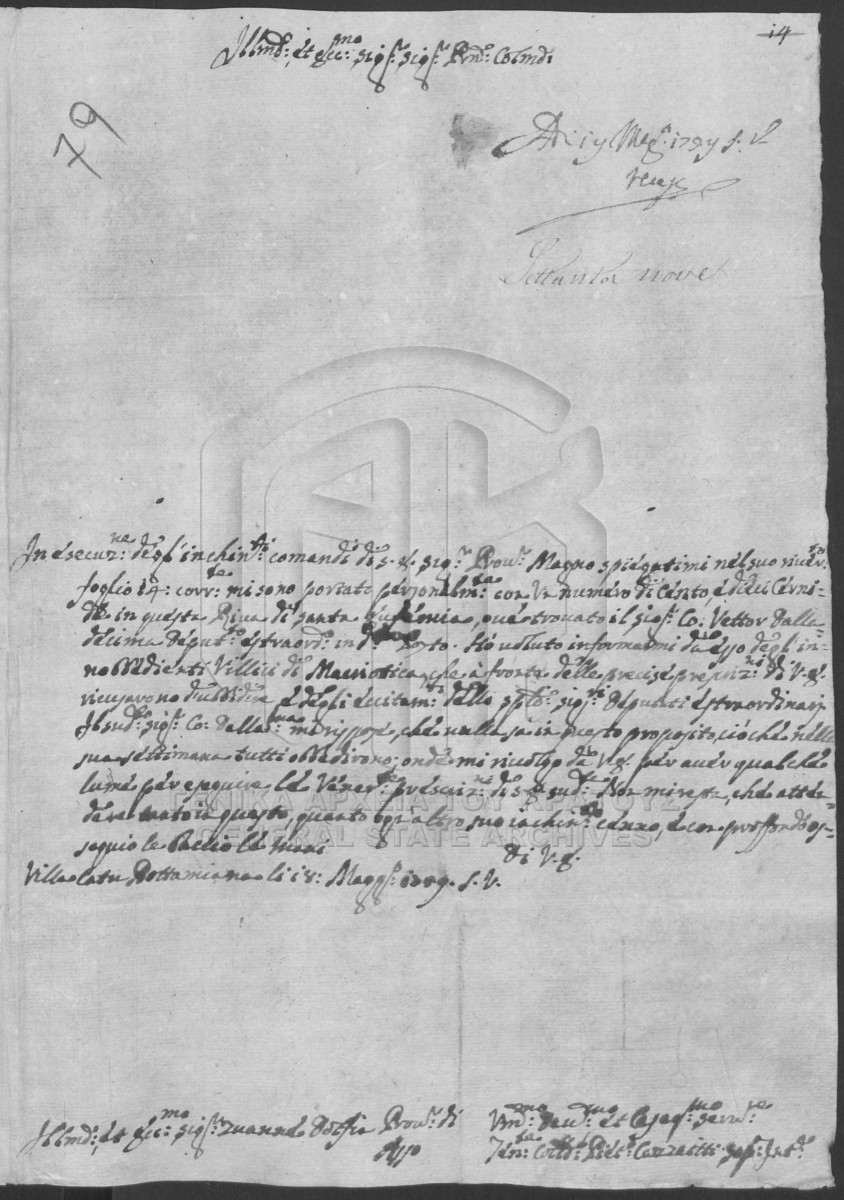 14
Illmo: et Ecc:mo Sig:r Sig:r Pne Colmo:
79
Adi 19 Mag:o 1759 S. V.
Settanta nove
In esecuz:ne degl'inchin:ti comandi di S. E. Sig:r Prov:r Magno spiegatimi nel suo river:to
foglio 14: corr:te mi sono portato personalm:te con un numero di Cento, e dieci Cerni-
de in questa Riva di Santa Eufemia, ove trovato il sig:r Co: Vettor Dalla-
decima Deput:o estraord:o in d:o Porto. Ho voluto informarmi da esso degl'in-
nobbedienti Villici di Macriotica, che a fronte delle precise prescriz:ni di V. E.
ricusavono d'ubbidire e degli eccitam:ti dello Sp:le sig:ri Deputati estraordinarj
Il sud:o sig:r Co: Dalla:ma mi rispose, che nulla sa in questo proposito, ciò che nella
sua settimana tutti obbedirono; onde mi rivolgo da V. E. per aver qualche
lume per eseguire le Vener:te prescriz:ni di S. E. sud:a Non mi resta, che atten-
dere tanto in questo, quanto ogn'altro suo inchin:to cenno, e con proffondo os-
sequio le Baccio le mani
Di V. E.
Villa Catu Pottamiana li 18: Magg:o 1759. S. V.
Illmo: et Ecc:mo Sig:r Zuanne Dolfin Prov:r di
Asso
Um:mo Dev:mo et Osseq:mo Serv:re
ΓΕΝΙΚΑ ΑΡΧΕΙΑ ΤΟΥ ΚΡΑΤΟΥΣ
GENERAL STATE ARCHIVES